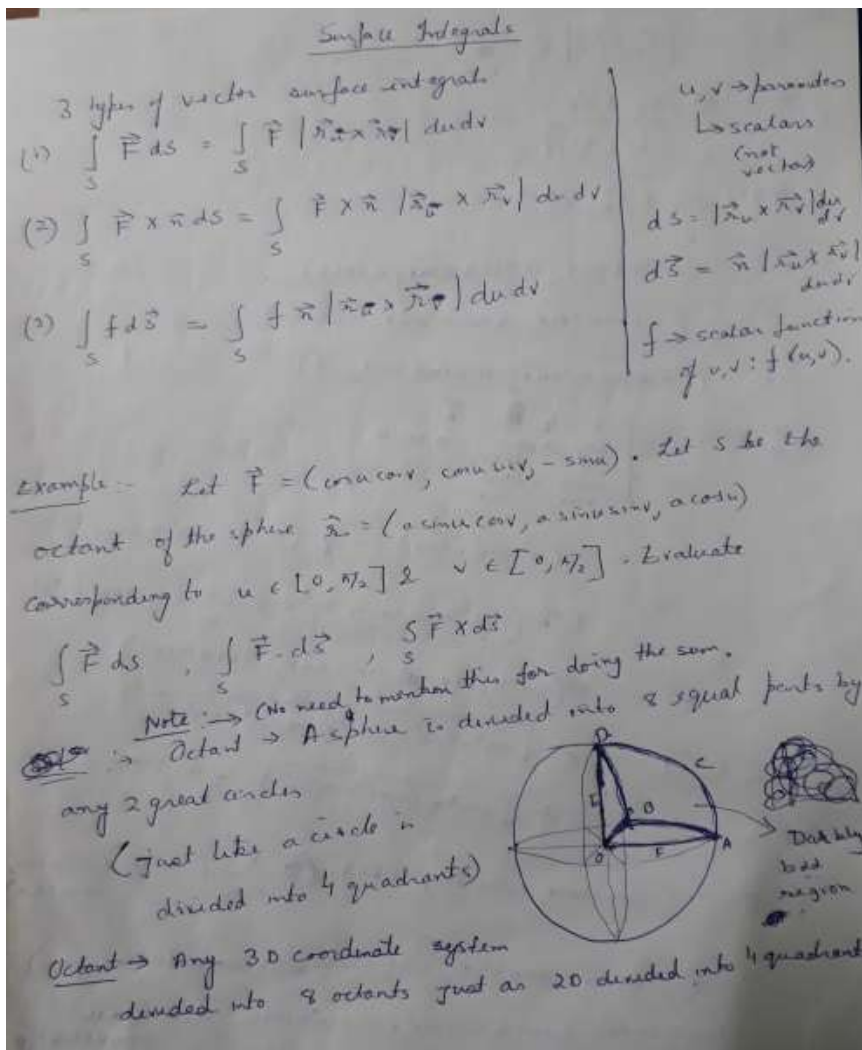 Surface Integrals
3 types of vector surface integrals
(1) ∫_S F⃗ ds = ∫_S F⃗ |r⃗_u × r⃗_v| du dv
(2) ∫_S F⃗ × n⃗ ds = ∫_S F⃗ × n⃗ |r⃗_u × r⃗_v| du dv
(3) ∫_S f d s⃗ = ∫_S f n⃗ |r⃗_u × r⃗_v| du dv
u, v → parameters
↳ scalars
(not vectors)
ds = |r⃗_u × r⃗_v| du dv
d s⃗ = n⃗ |r⃗_u × r⃗_v| du dv
f → scalar function
of u, v : f(u,v).
Example :- Let F⃗ = (cosu cosv, cosu sinv, - sinu). Let S be the
octant of the sphere r⃗ = (a sinu cosv, a sinu sinv, a cosu)
corresponding to u ∈ [0, π/2] & v ∈ [0, π/2]. Evaluate
∫_S F⃗ ds , ∫_S F⃗ . d s⃗ , ∫_S F⃗ × d s⃗
Note :→ (No need to mention this for doing the sum.
:→ Octant → A sphere is devided into 8 equal parts by
any 2 great circles
(just like a circle is
divided into 4 quadrants)
D
C
E
B
O
F
A
region
Octant → Any 3D coordinate system
devided into 8 octants just as 2D devided into 4 quadrant